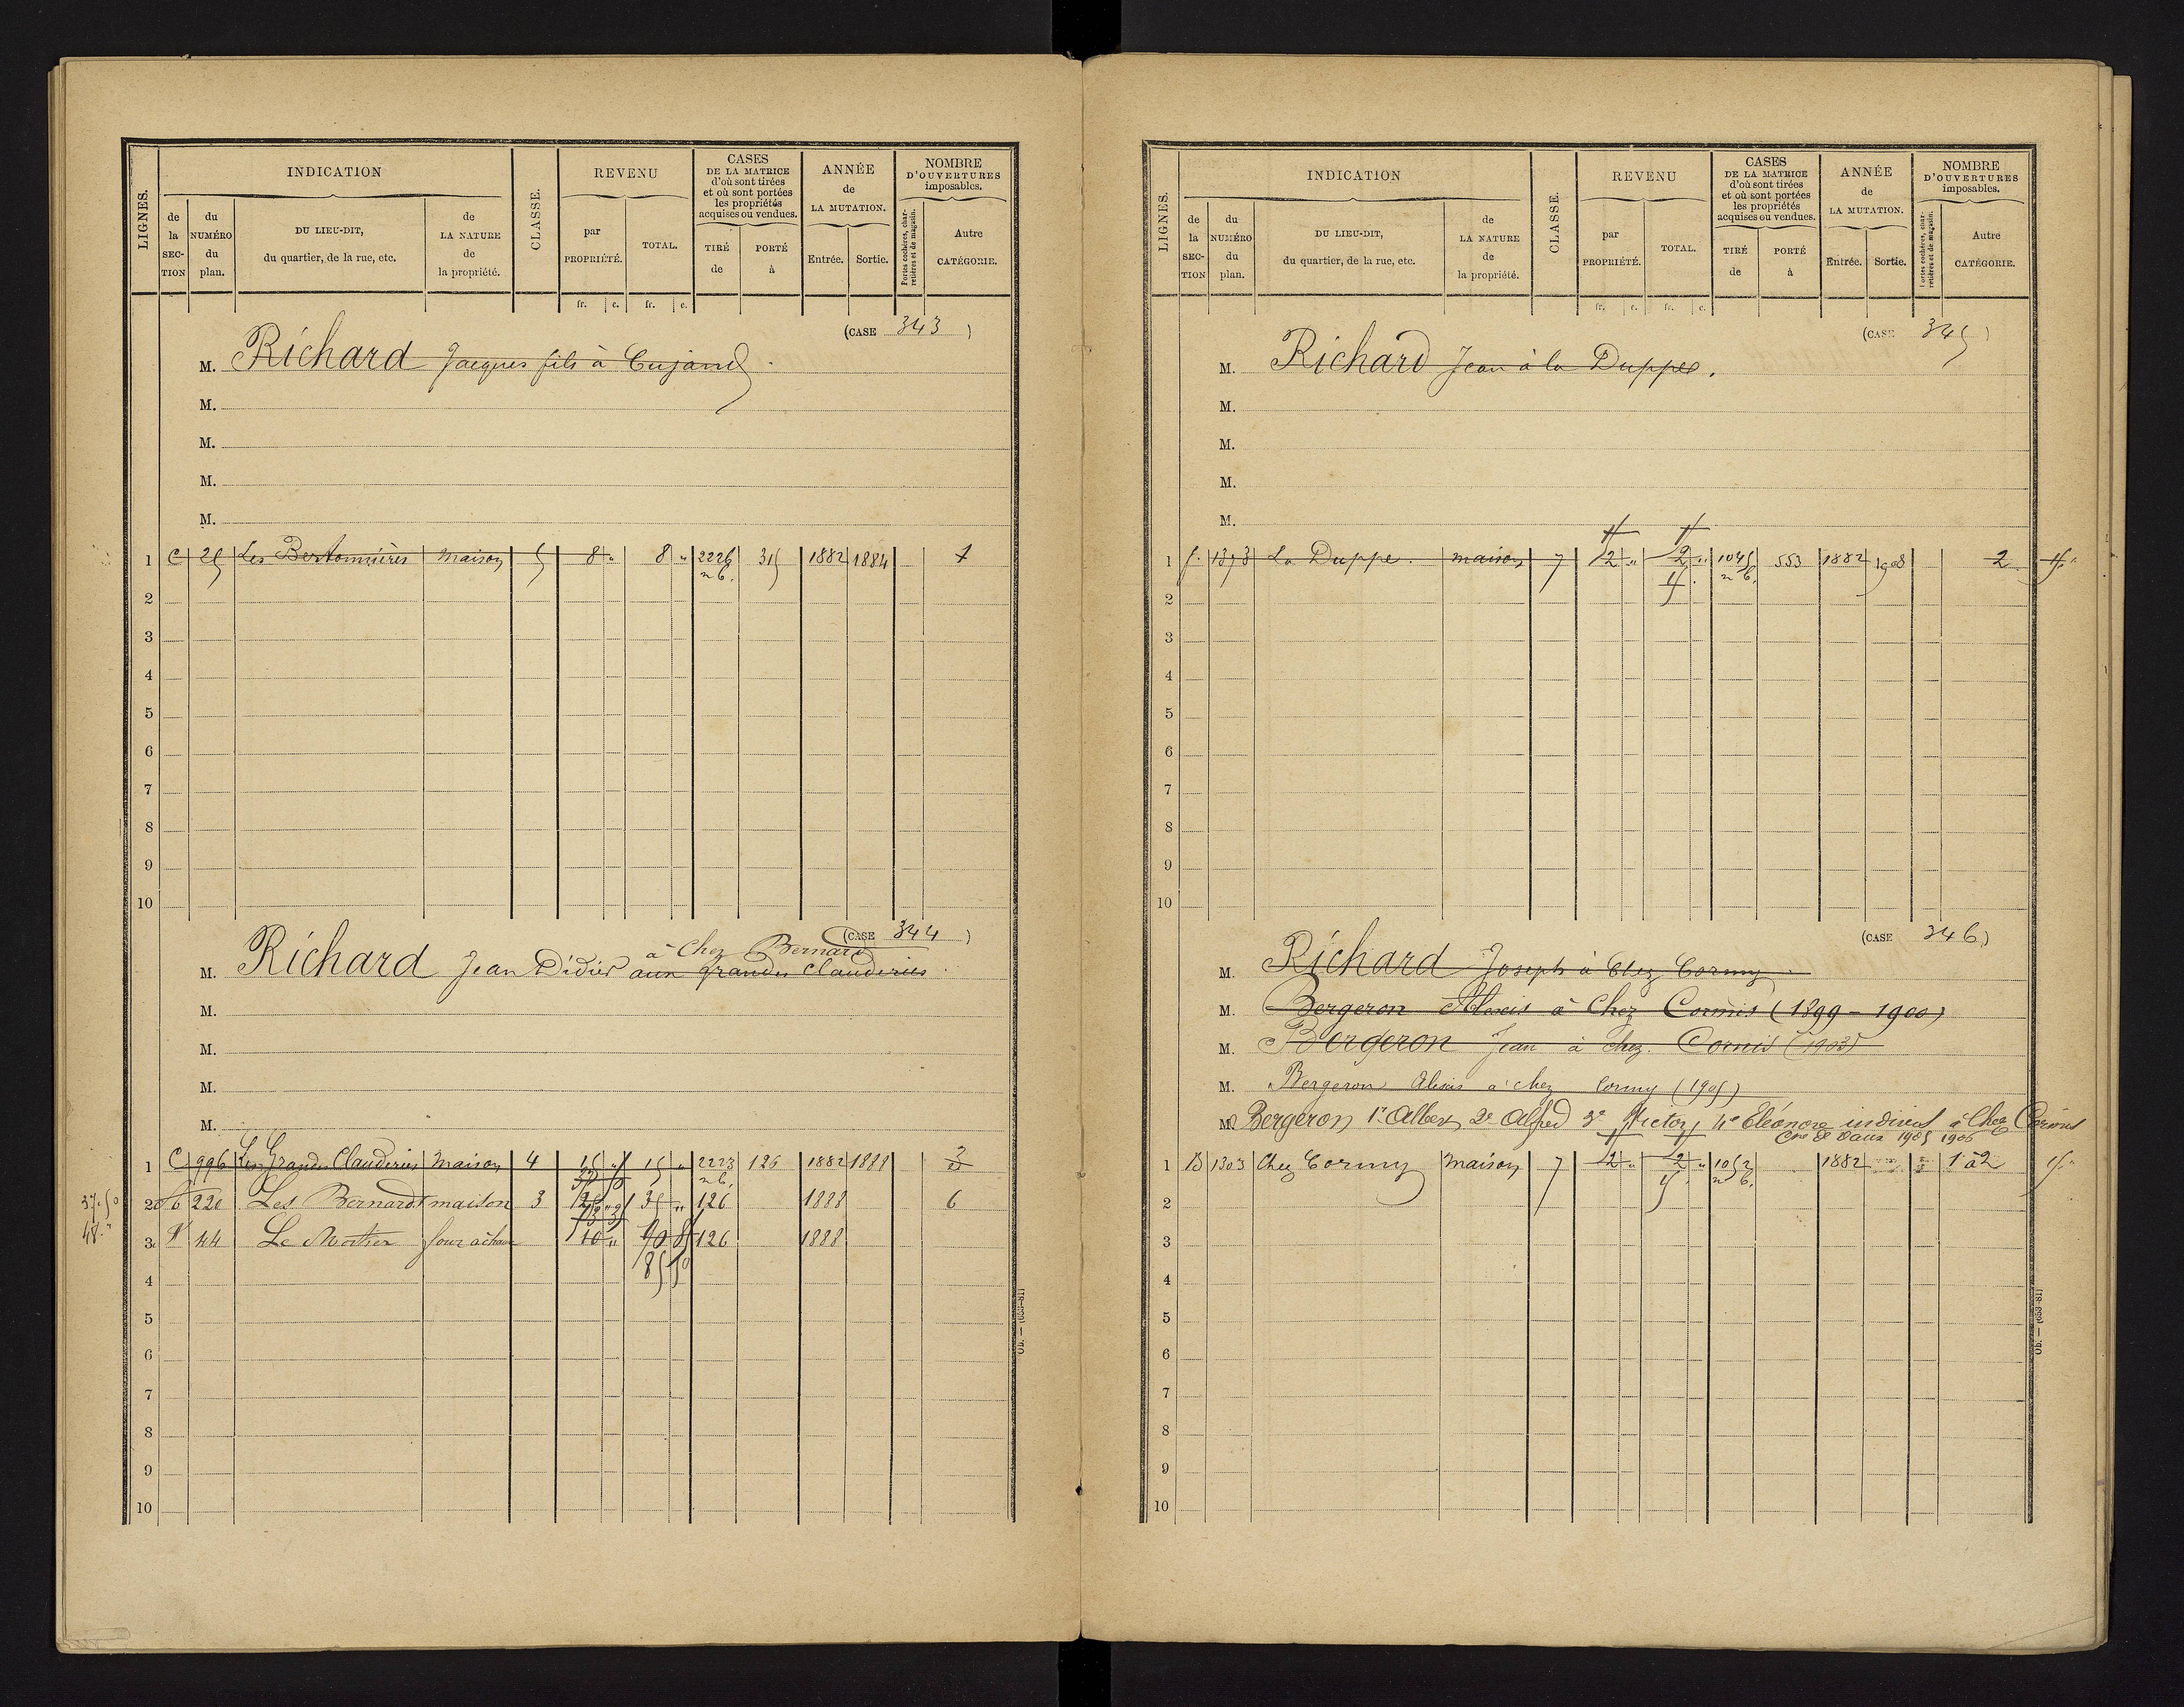 LIGNES.
INDICATION
de la SECTION
du NUMÉRO du plan.
DU LIEU-DIT, du quartier, de la rue, etc.
de LA NATURE de la propriété.
CLASSE.
REVENU
par PROPRIÉTÉ.
TOTAL.
CASES DE LA MATRICE d'où sont tirées et où sont portées les propriétés acquises ou vendues.
TIRÉ de
PORTÉ à
ANNÉE de LA MUTATION.
Entrée.
Sortie.
NOMBRE D'OUVERTURES imposables.
Portes cochères, charretières et de magasin.
Autre CATÉGORIE.
fr. c. fr. c.
(CASE 343)
M. Richard Jacques fils à Cujand
M.
M.
M.
M.
1 C 25 Les Bertonnières maison 5 8 " 8 " 2226 n b. 315 1882 1884 1
2
3
4
5
6
7
8
9
10
(CASE 344)
à Chez Bernard
M. Richard Jean Didier aux grandes Clauderies
M.
M.
M.
M.
1 C 996 Les Grandes Clauderies maison 4 15 " 15 " 2223 n b. 126 1882 1888 2
37.50 2 220 Les Bernard maison 3 35 " 126 1888 6
48. " 3 44 Le Mortier four à chaux 126 1888
85 50
4
5
6
7
8
9
10
Ob. — (653-81)
LIGNES.
INDICATION
de la SECTION
du NUMÉRO du plan.
DU LIEU-DIT, du quartier, de la rue, etc.
de LA NATURE de la propriété.
CLASSE.
REVENU
par PROPRIÉTÉ.
TOTAL.
CASES DE LA MATRICE d'où sont tirées et où sont portées les propriétés acquises ou vendues.
TIRÉ de
PORTÉ à
ANNÉE de LA MUTATION.
Entrée.
Sortie.
NOMBRE D'OUVERTURES imposables.
Portes cochères, charretières et de magasin.
Autre CATÉGORIE.
fr. c. fr. c.
(CASE 345)
M. Richard Jean à la Duppe.
M.
M.
M.
M.
1 1373 La Duppe. maison 7 12 " 12 " 1045 n b. 553 1882 1908 2
2
3
4
5
6
7
8
9
10
(CASE 346)
M. Richard Joseph à Chez Cormy
M. Bergeron Alexis à Chez Cormis (1899 - 1900)
M. Bergeron Jean à chez Cormis (1903)
M. Bergeron Alexis à chez Cormy (1905)
M. Bergeron 1° Albert 2° Alfred 3° Victor, 4° Eléonore indivis à Chez
1905 1906
1 B 1303 Chez Cormy maison 7 12 " 12 " 1052 n b. 1882 1 à 2
2
3
4
5
6
7
8
9
10
Ob. — (653-81)